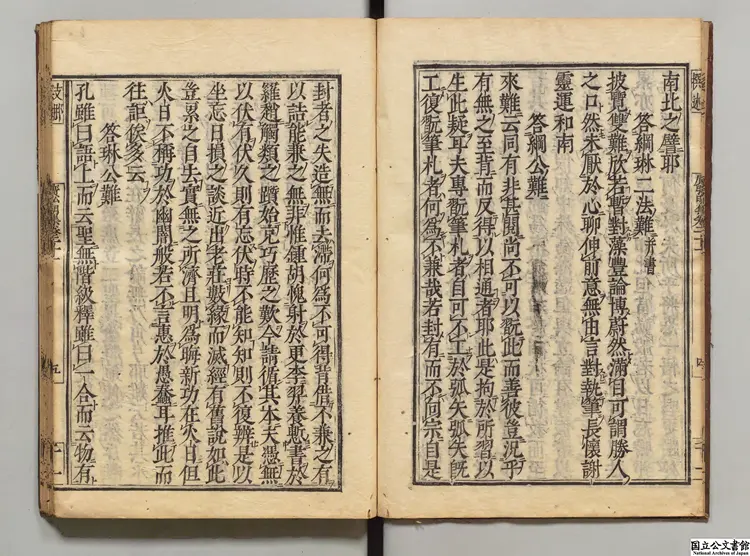 南北之譬耶
答綱琳二法難 并書
披覽雙難欣若暫對藻豐論博蔚然滿目可謂勝人
之口然未厭於心聊伸前意無由言對執筆長懷謝
靈運和南
答綱公難
來難云同有非甚閡尚不可以翫此而善彼豈況乎
有無之至背而反得以相通者耶此是拘於所習以
生此疑耳夫專翫筆札者自可不工於弧矢弧矢旣
工復翫筆札者何為不兼哉若封有而不向宗自是
封者之失造無而去滯何為不可得背借不兼之有
以詰能兼之無非惟鍾胡愧射於更李羿養慙書於
羅趙觸類之躓始克巧歷之歎今請循其本夫憑無
以伏有伏久則有忘伏時不能知知則不復辨是以
坐忘日損之談近出老莊數緣而滅經有舊說如此
豈累之自去實無之所濟且明為晦新功在火日但
火日不稱功於幽闇般若不言惠於愚蠢耳推此而
往詎俟多云
答琳公難
孔雖曰語上而云聖無階級釋雖曰一合而云物有
五
十一
国立公文書館
National Archives of Japan